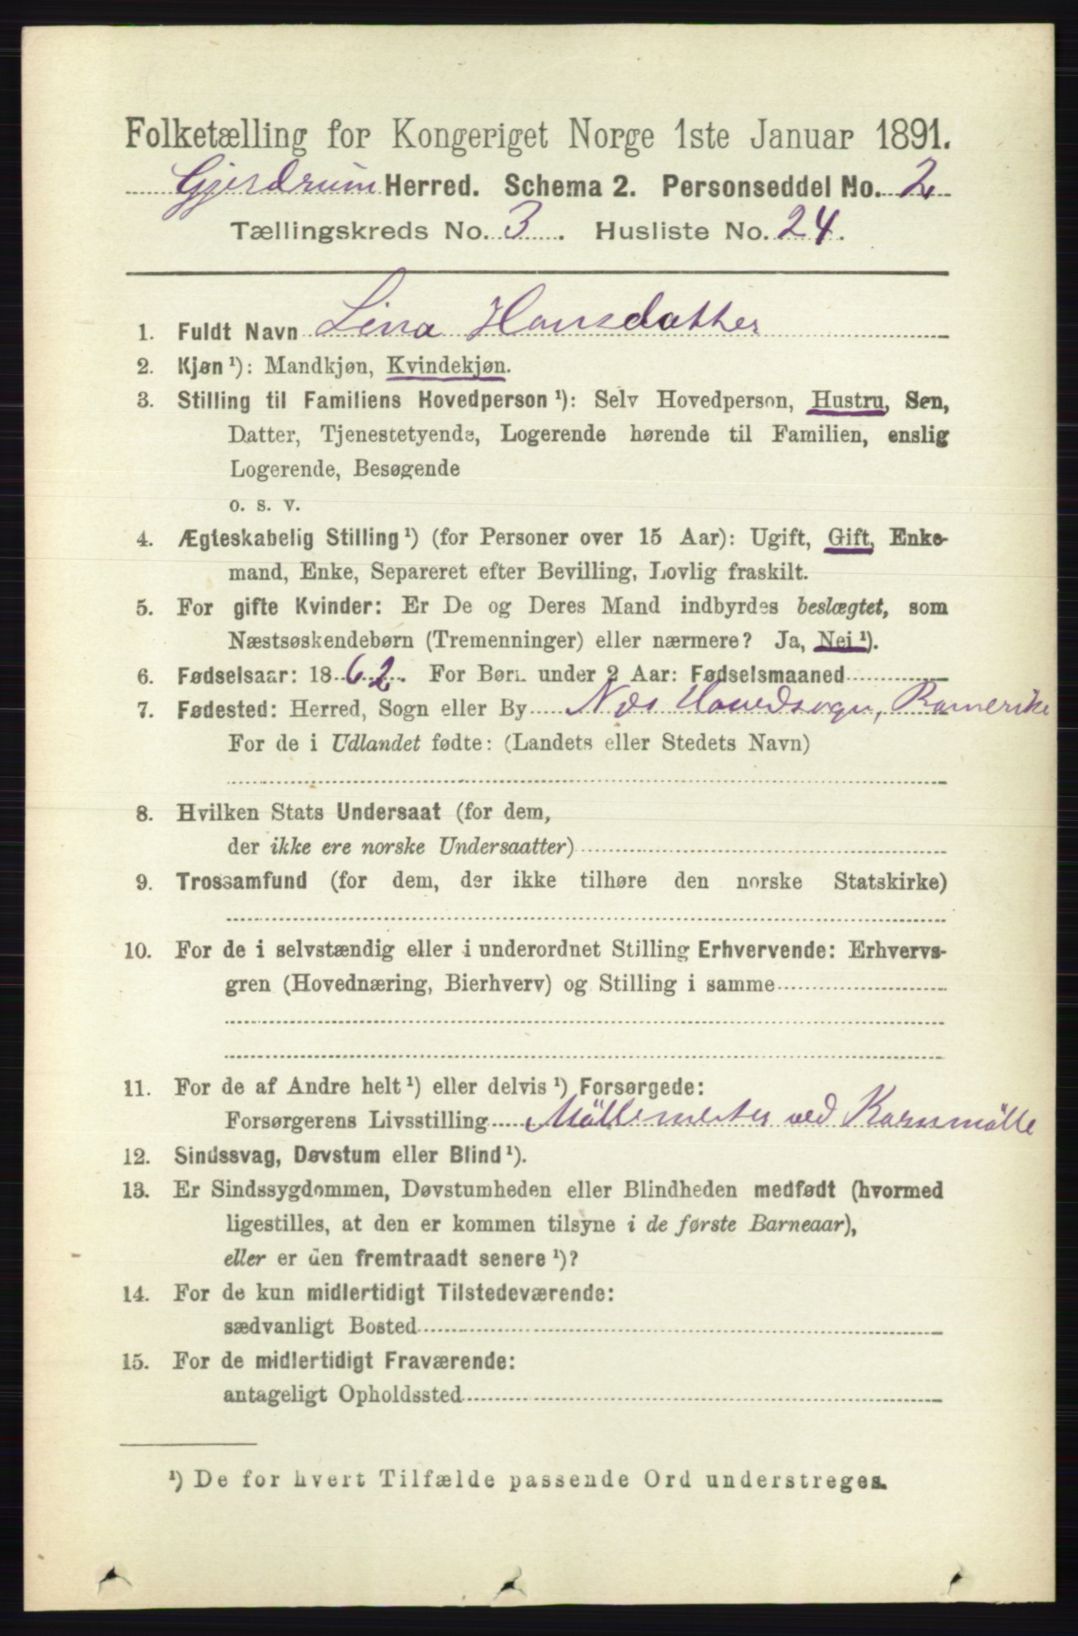 Folketælling for Kongeriget Norge 1ste Januar 1891.
Gjerdrum Herred. Schema 2. Personseddel No. 2
Tællingskreds No. 3. Husliste No. 24.
1. Fuldt Navn Lina Hansdatter
2. Kjøn ¹): Mandkjøn, Kvindekjøn.
3. Stilling til Familiens Hovedperson ¹): Selv Hovedperson, Hustru, Søn,
Datter, Tjenestetyende, Logerende hørende til Familien, enslig
Logerende, Besøgende
o. s. v.
4. Ægteskabelig Stilling ¹) (for Personer over 15 Aar): Ugift, Gift, Enke-
mand, Enke, Separeret efter Bevilling, Lovlig fraskilt.
5. For gifte Kvinder: Er De og Deres Mand indbyrdes beslægtet, som
Næstsøskendebørn (Tremenninger) eller nærmere? Ja, Nei ¹).
6. Fødselsaar: 1862. For Børn under 2 Aar: Fødselsmaaned
7. Fødested: Herred, Sogn eller By Næs Hovedsogn, Romerike
For de i Udlandet fødte: (Landets eller Stedets Navn)
8. Hvilken Stats Undersaat (for dem,
der ikke ere norske Undersaatter)
9. Trossamfund (for dem, der ikke tilhøre den norske Statskirke)
10. For de i selvstændig eller i underordnet Stilling Erhvervende: Erhvervs-
gren (Hovednæring, Bierhverv) og Stilling i samme
11. For de af Andre helt ¹) eller delvis ¹) Forsørgede:
Forsørgerens Livsstilling Möllemester ved Kornmölle
12. Sindssvag, Døvstum eller Blind ¹).
13. Er Sindssygdommen, Døvstumheden eller Blindheden medfødt (hvormed
ligestilles, at den er kommen tilsyne i de første Barneaar),
eller er den fremtraadt senere ¹)?
14. For de kun midlertidigt Tilstedeværende:
sædvanligt Bosted
15. For de midlertidigt Fraværende:
antageligt Opholdssted
¹) De for hvert Tilfælde passende Ord understreges.